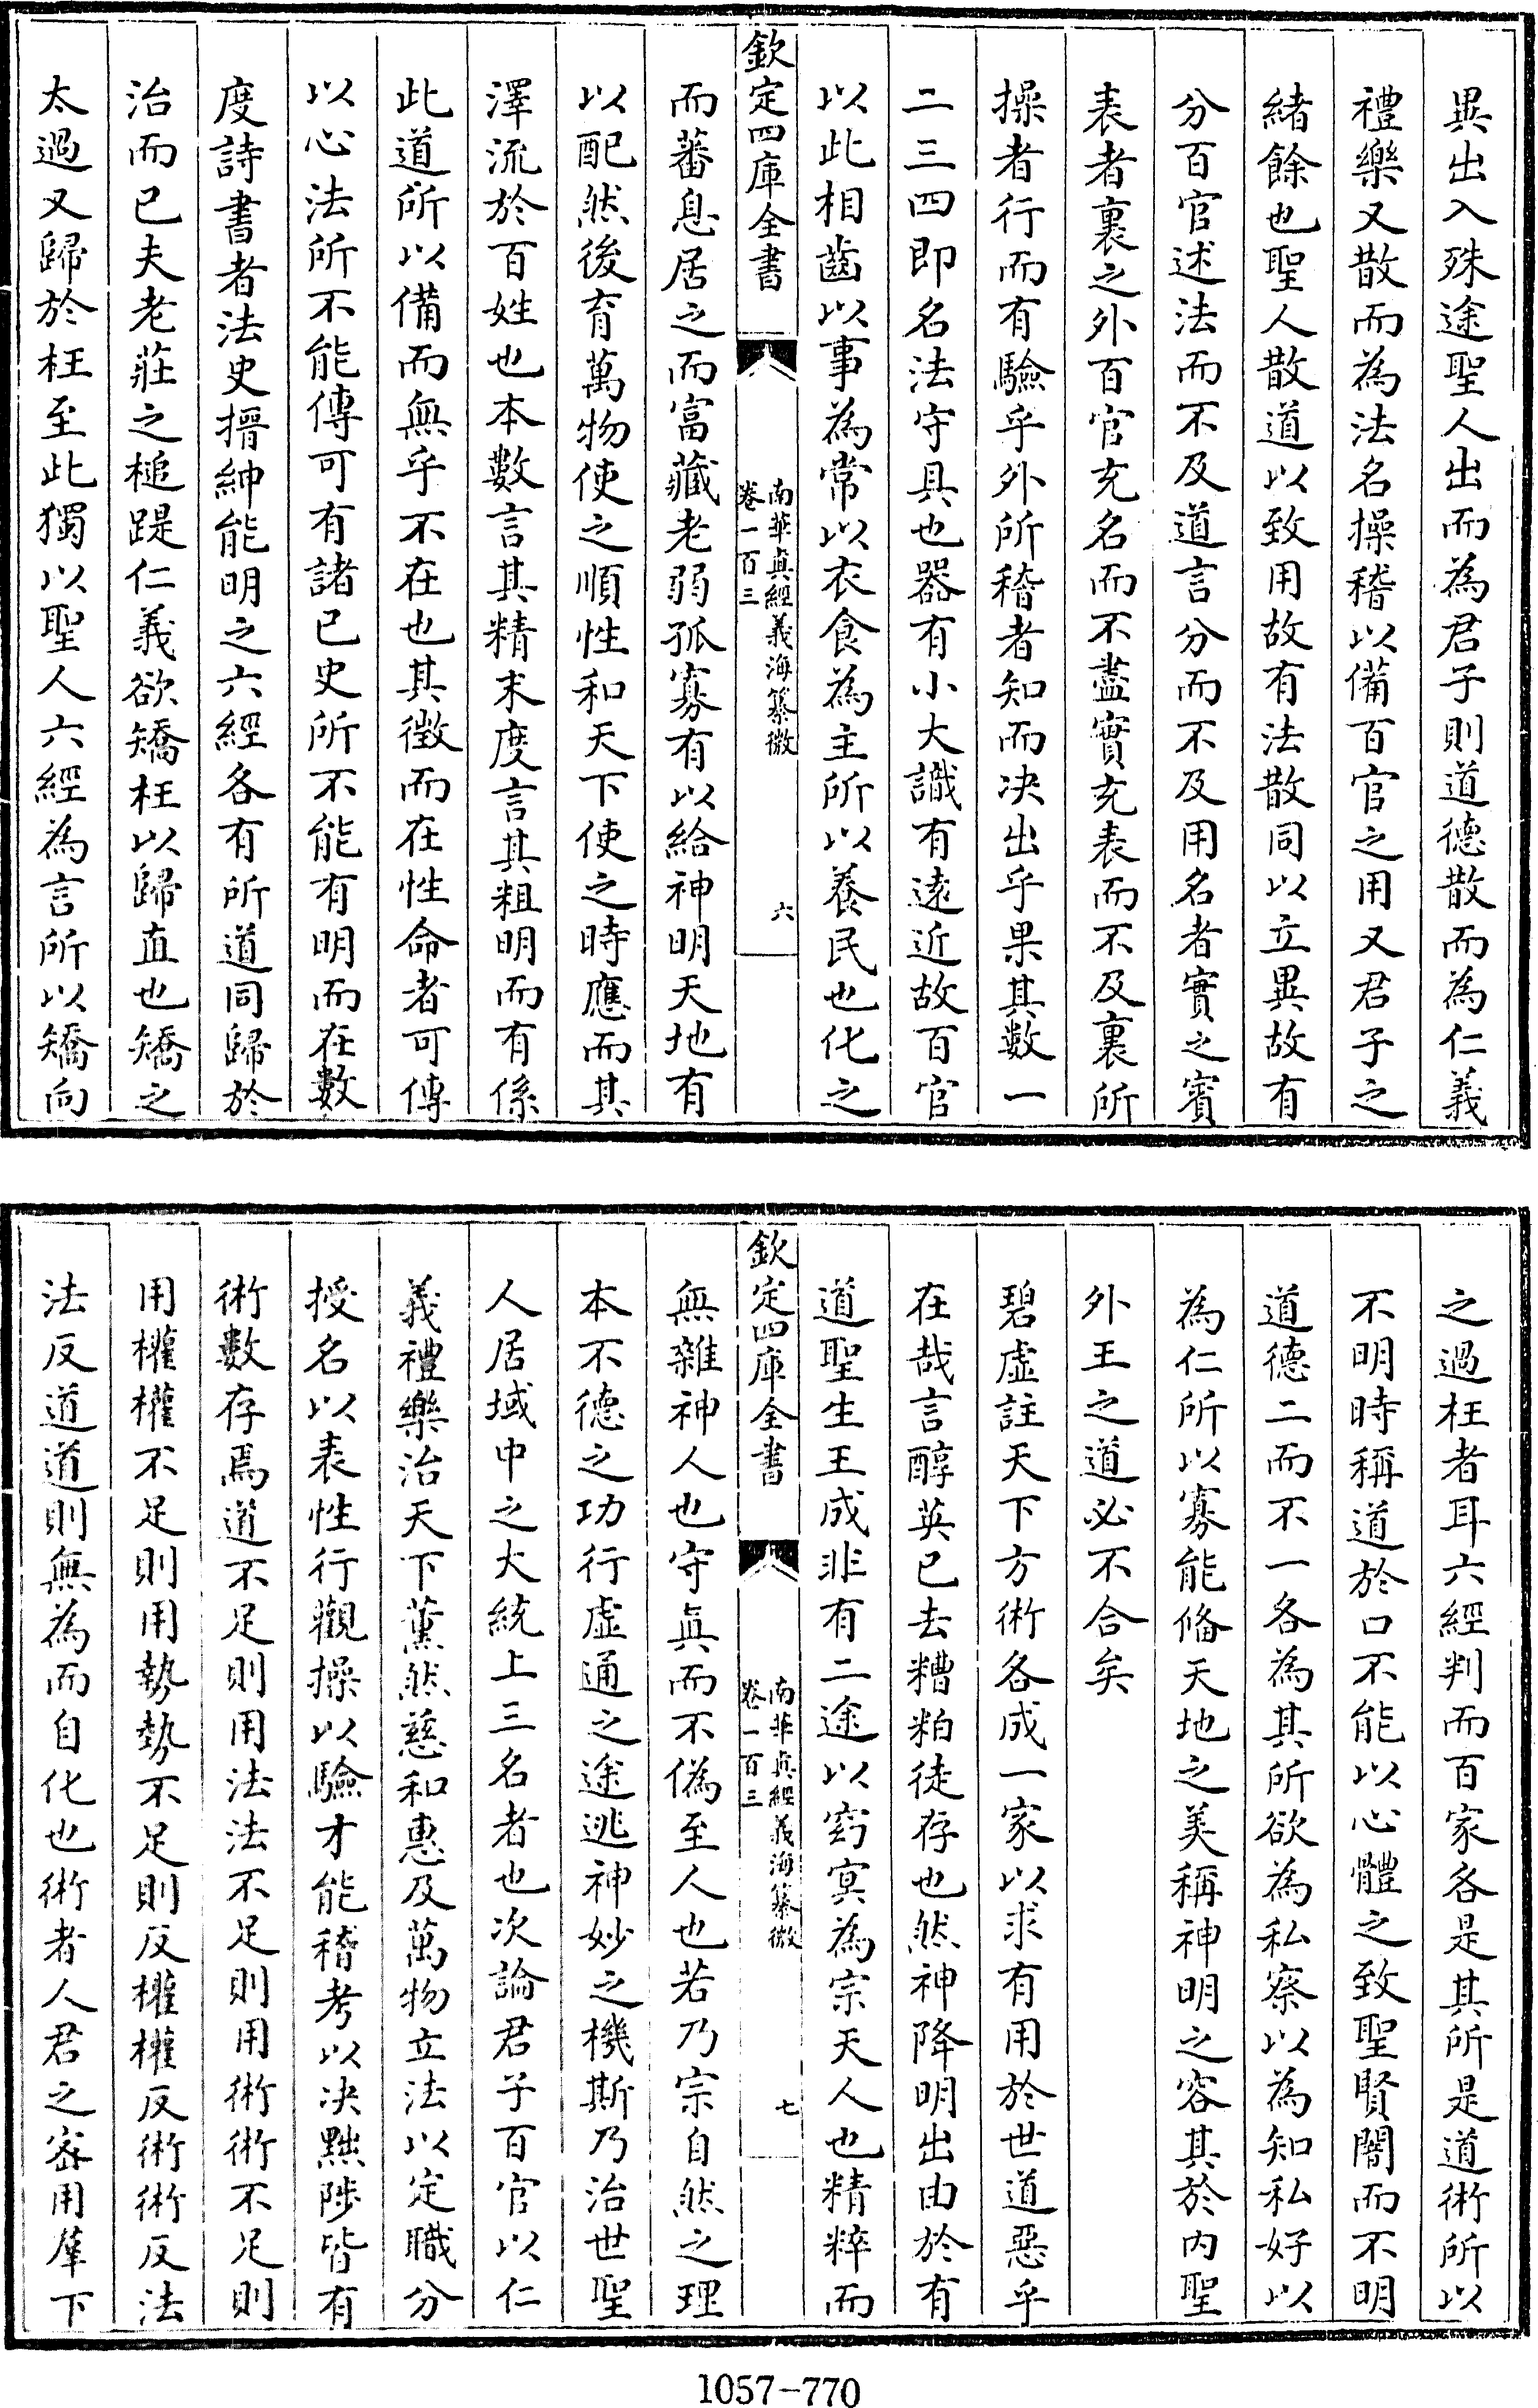 異出入殊途聖人出而為君子則道德散而為仁義
禮樂又散而為法名操稽以備百官之用又君子之
緒餘也聖人散道以致用故有法散同以立異故有
分百官述法而不及道言分而不及用名者實之賓
表者裏之外百官充名而不盡實充表而不及裏所
操者行而有驗乎外所稽者知而决出乎果其數一
二三四即名法守具也器有小大識有遠近故百官
以此相齒以事為常以衣食為主所以養民也化之
欽定四庫全書
南華真經義海纂微
卷一百三
六
而蕃息居之而富藏老弱孤寡有以給神明天地有
以配然後育萬物使之順性和天下使之時應而其
澤流於百姓也本數言其精末度言其粗明而有係
此道所以備而無乎不在也其徵而在性命者可傳
以心法所不能傳可有諸已史所不能有明而在數
度詩書者法史搢紳能明之六經各有所道同歸於
治而已夫老莊之槌踶仁義欲矯枉以歸直也矯之
太過又歸於枉至此獨以聖人六經為言所以矯向
之過枉者耳六經判而百家各是其所是道術所以
不明時稱道於口不能以心體之致聖賢闇而不明
道德二而不一各為其所欲為私察以為知私好以
為仁所以寡能偹天地之美稱神明之容其於内聖
外王之道必不合矣
碧虚註天下方術各成一家以求有用於世道惡乎
在哉言醇英已去糟粕徒存也然神降明出由於有
道聖生王成非有二途以窈冥為宗天人也精粹而
欽定四庫全書
南華真經義海纂微
卷一百三
七
無雜神人也守真而不偽至人也若乃宗自然之理
本不德之功行虚通之途逃神妙之機斯乃治世聖
人居域中之大統上三名者也次論君子百官以仁
義禮樂治天下薰然慈和惠及萬物立法以定職分
授名以表性行觀操以驗才能稽考以决黜陟皆有
術數存焉道不足則用法法不足則用術術不足則
用權權不足則用勢勢不足則反權權反術術反法
法反道道則無為而自化也術者人君之宻用羣下
1057-770